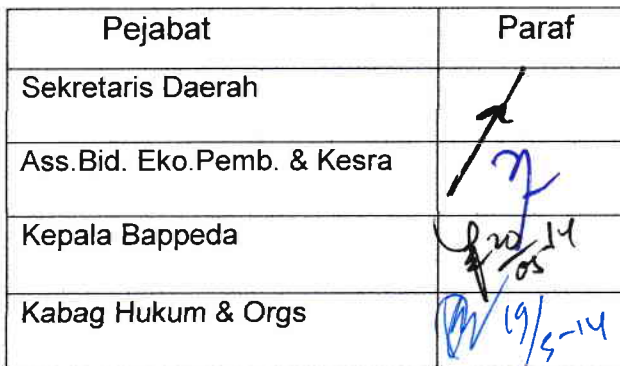 Pejabat Paraf
Sekretaris Daerah
Ass.Bid. Eko.Pemb. & Kesra
Kepala Bappeda 20/05 14
Kabag Hukum & Orgs 19/5-14